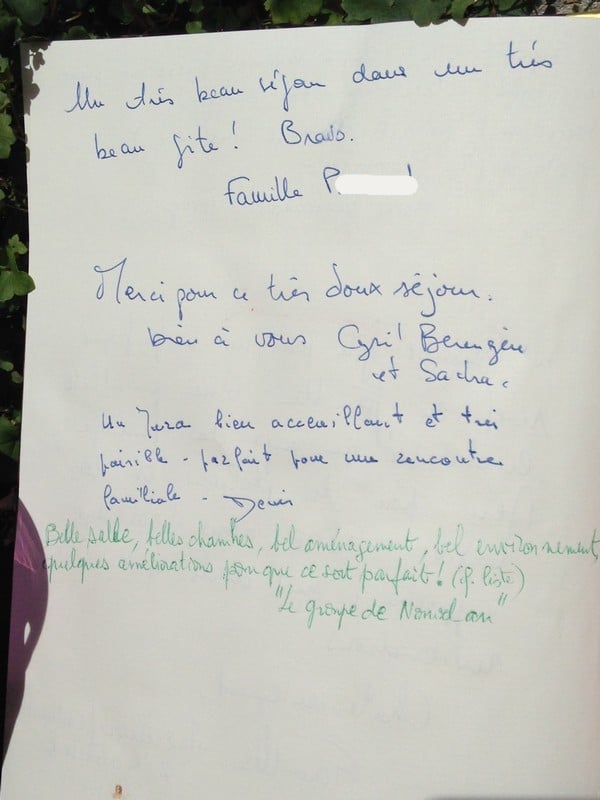 Un très beau séjour dans un très
beau gîte ! Bravo.
Famille P
Merci pour ce très doux séjour.
bien à vous Cyril Berengère
et Sacha.
Un Jura bien acceuillant et très
paisible - parfait pour une rencontre
familiale - Denis
Belle salle, belles chambres, bel aménagement, bel environnement,
quelques améliorations pour que ce soit parfait ! (cf. liste)
"Le groupe de Nouvel an"